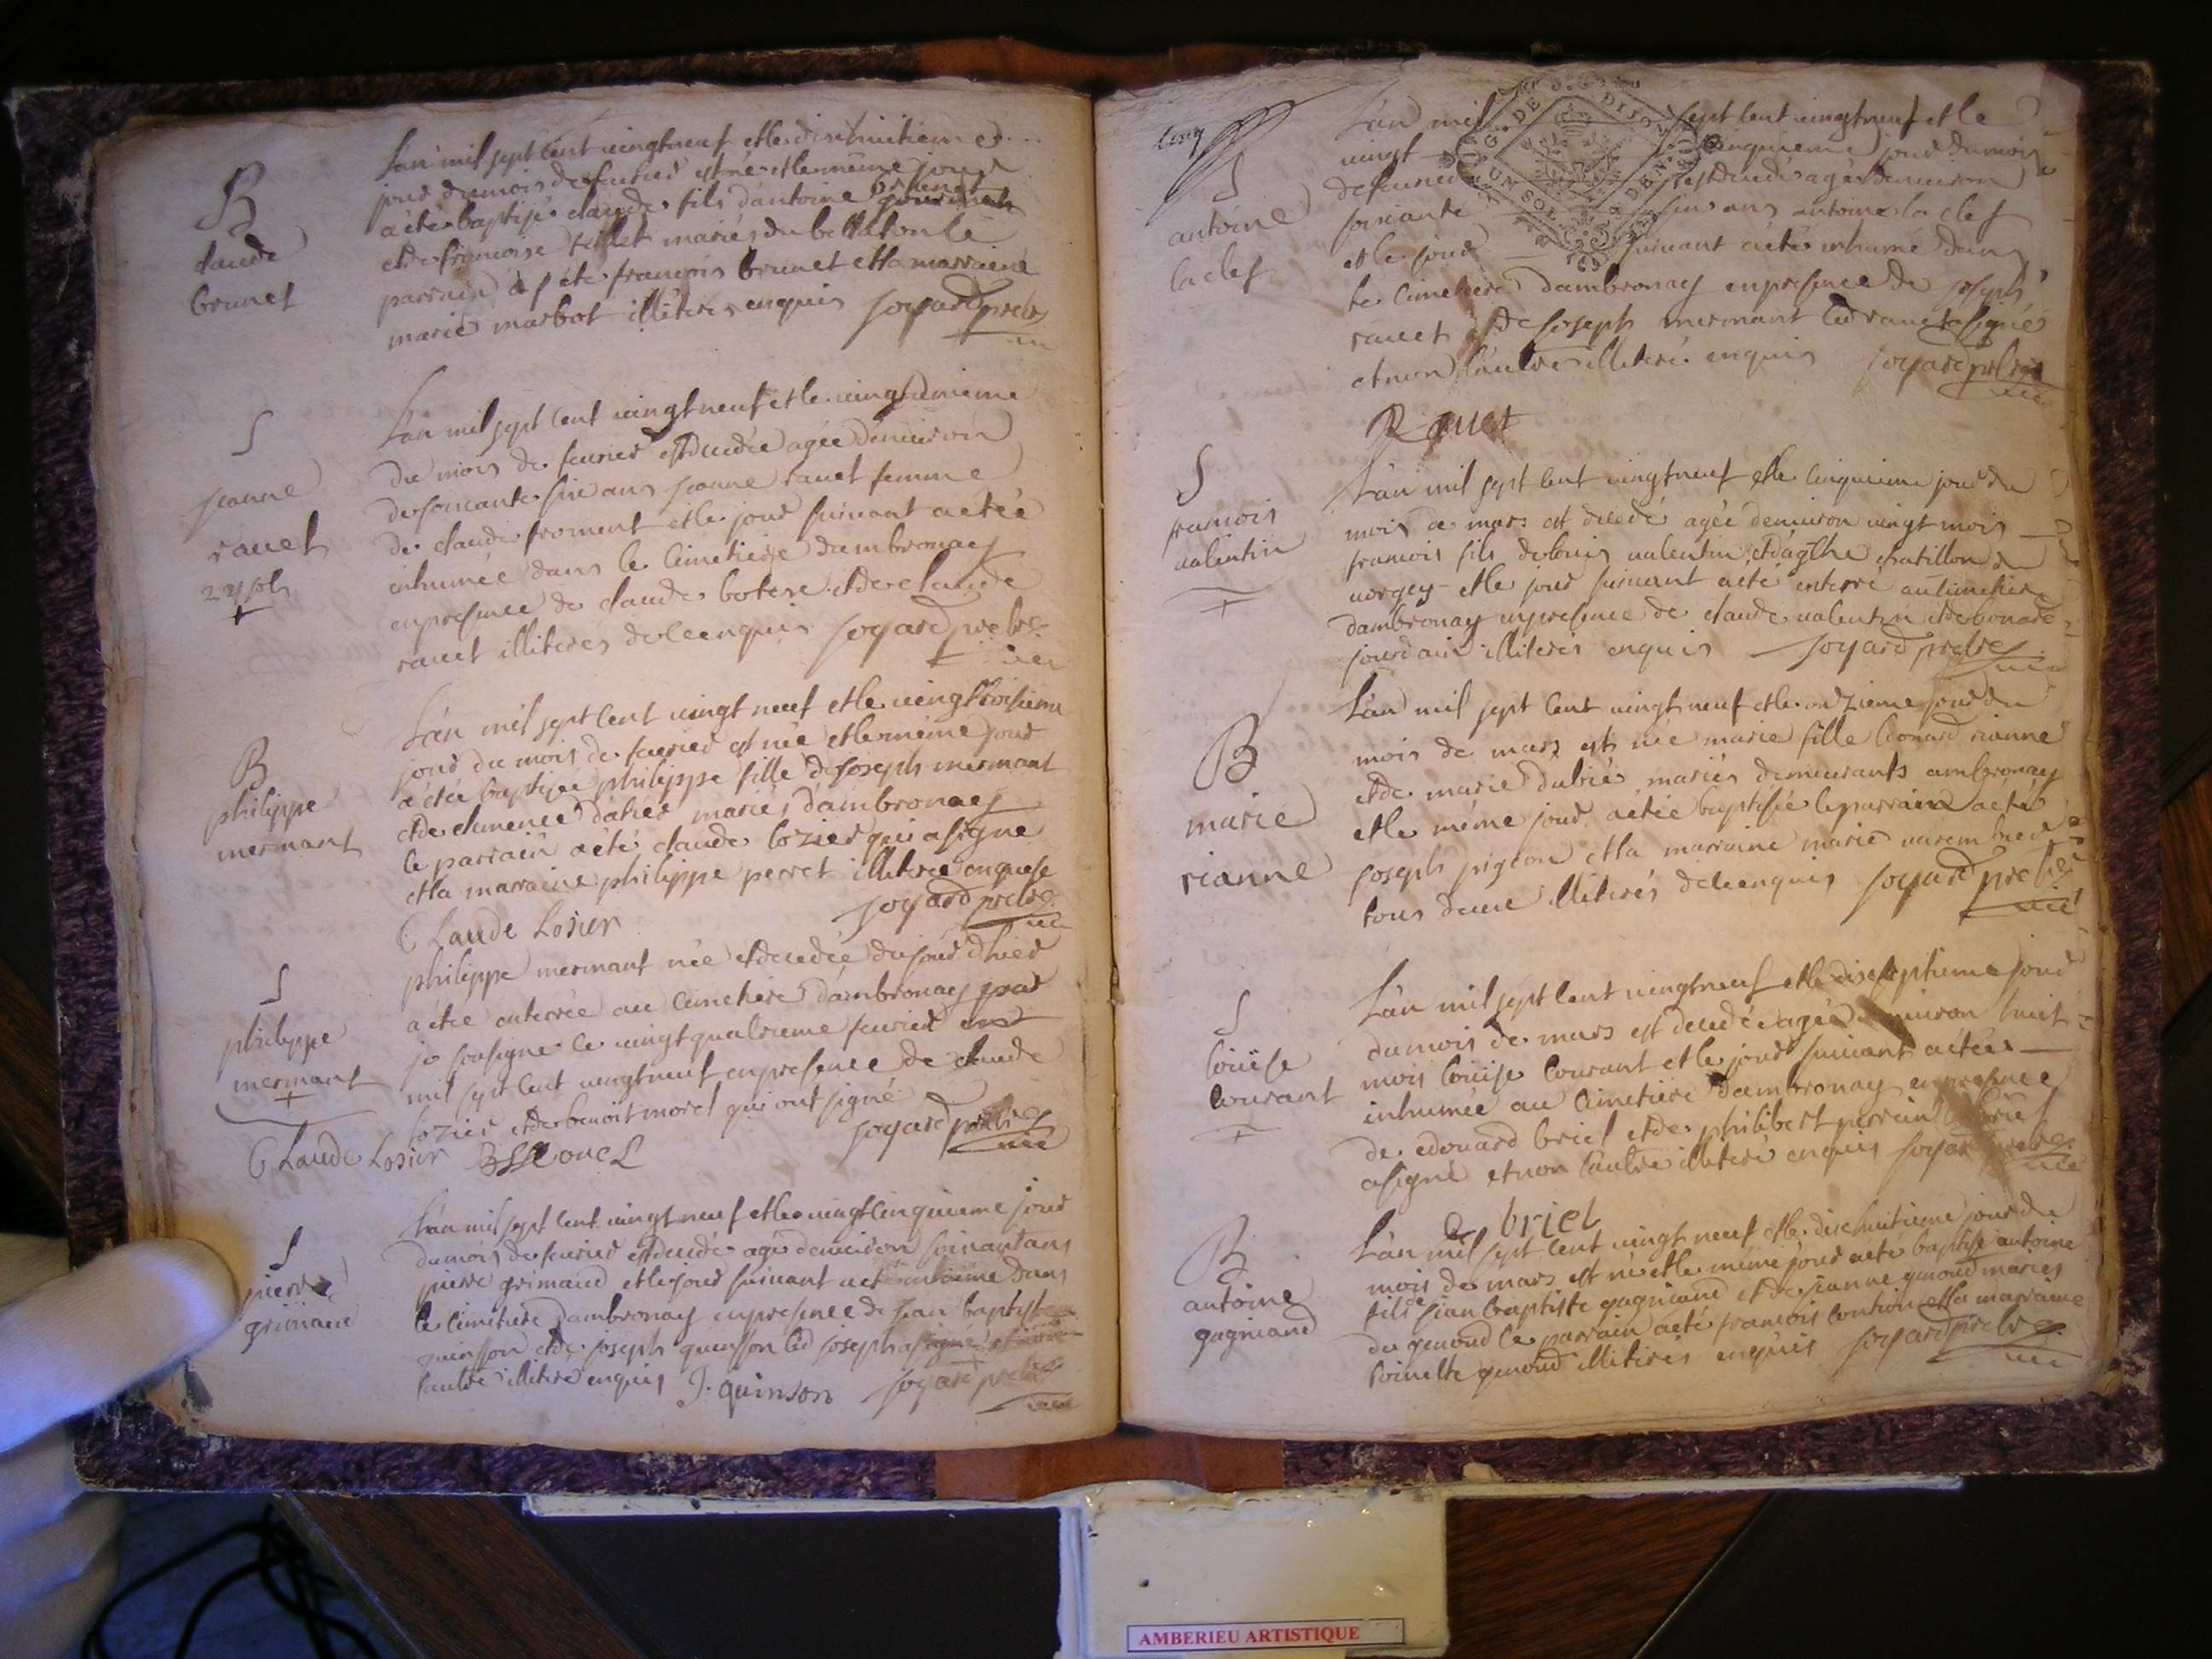 B
claude
brunet
L'an mil sept cent vingt neuf et le dix huitieme
jour du mois de feurier est né et le même jour
a été baptisé claude fils d'antoine brunet
et de francoise tillet mariés du
parrain a été francois brunet et la marraine
marie marbot illiterés enquis soyard prebre
S
jeanne
rauet
L'an mil sept cent vingt neuf et le vingt
du mois de feurier est decedée agée d'enuiron
de soixante six ans jeanne rauet femme
de claude froment et le jour suiuant a été
inhumée dans le cimetiere d'ambronay
en presence de claude et de claude
rauet illiterés de ce enquis soyard prebre
B
philippe
mermant
L'an mil sept cent vingt neuf et le vingt troisieme
jour du mois de feurier est née et le même jour
a été baptisée philippe fille de joseph mermant
et de clemence mariés d'ambronay
le parrain a été claude lozier qui a signé
et la marraine philippe perret illiterée enquise
Claude Losier soyard prebre
S
philippe
mermant
philippe mermant née et decedée du jour d'hier
a été enterrée au cimetiere d'ambronay par
je sousigné le vingt quatrieme feurier
mil sept cent vingt neuf en presence de claude
lozier et de benoit morel qui ont signé
Claude Losier B Morel soyard prebre
S
pierre
grimaud
L'an mil sept cent vingt neuf et le vingt cinquieme jour
du mois de feurier est decedé agé d'enuiron soixante ans
pierre grimaud et le jour suiuant a été inhumé dans
le cimetiere d'ambronay en presence de jean baptiste
quinsson et de joseph quinsson led joseph a signé et non
l'autre illiteré enquis J. quinson soyard prebre
S
antoine
la clef
G. DE DIJON
UN SOL
L'an mil sept cent vingt neuf et le
vingt cinquieme jour du mois
de feurier est decedé agé d'enuiron
soixante ans antoine la clef
et le jour suiuant a été inhumé dans
le cimetiere d'ambronay en presence de joseph
rauet et de joseph mermant led rauet a signé
et non l'autre illiteré enquis soyard prebre
Rauet
S
francois
ualentin
L'an mil sept cent vingt neuf et le cinquieme jour du
mois de mars est decedé agée d'enuiron vingt mois
francois fils de louis ualentin et d'agthe chatillon de
uorgey et le jour suiuant a été enterré au cimetiere
d'ambronay en presence de claude ualentin et de
jourdain illiterés enquis soyard prebre
B
marie
rianne
L'an mil sept cent vingt neuf et le onzieme jour du
mois de mars est née marie fille rianne
et de marie dubié mariés demeurants ambronay
et le même jour a été baptisée le parrain a été
joseph pigeon et la marraine marie
tous deux illiterés de ce enquis soyard prebre
S
louise
courant
L'an mil sept cent vingt neuf et le dix septieme jour
du mois de mars est decedée agée d'enuiron huit
mois louise courant et le jour suiuant a été
inhumée au cimetiere d'ambronay en presence
de edouard briel et de philibert perrin briel
a signé et non l'autre illiteré enquis soyard prebre
briel
B
antoine
gagniaud
L'an mil sept cent vingt neuf et le dix huitieme jour du
mois de mars est né et le même jour a été baptisé antoine
fils de jean baptiste gagniaud et de jeanne genoud mariés
du genoud le parrain a été francois et la marraine
genoud illiterés enquis soyard prebre
AMBERIEU ARTISTIQUE